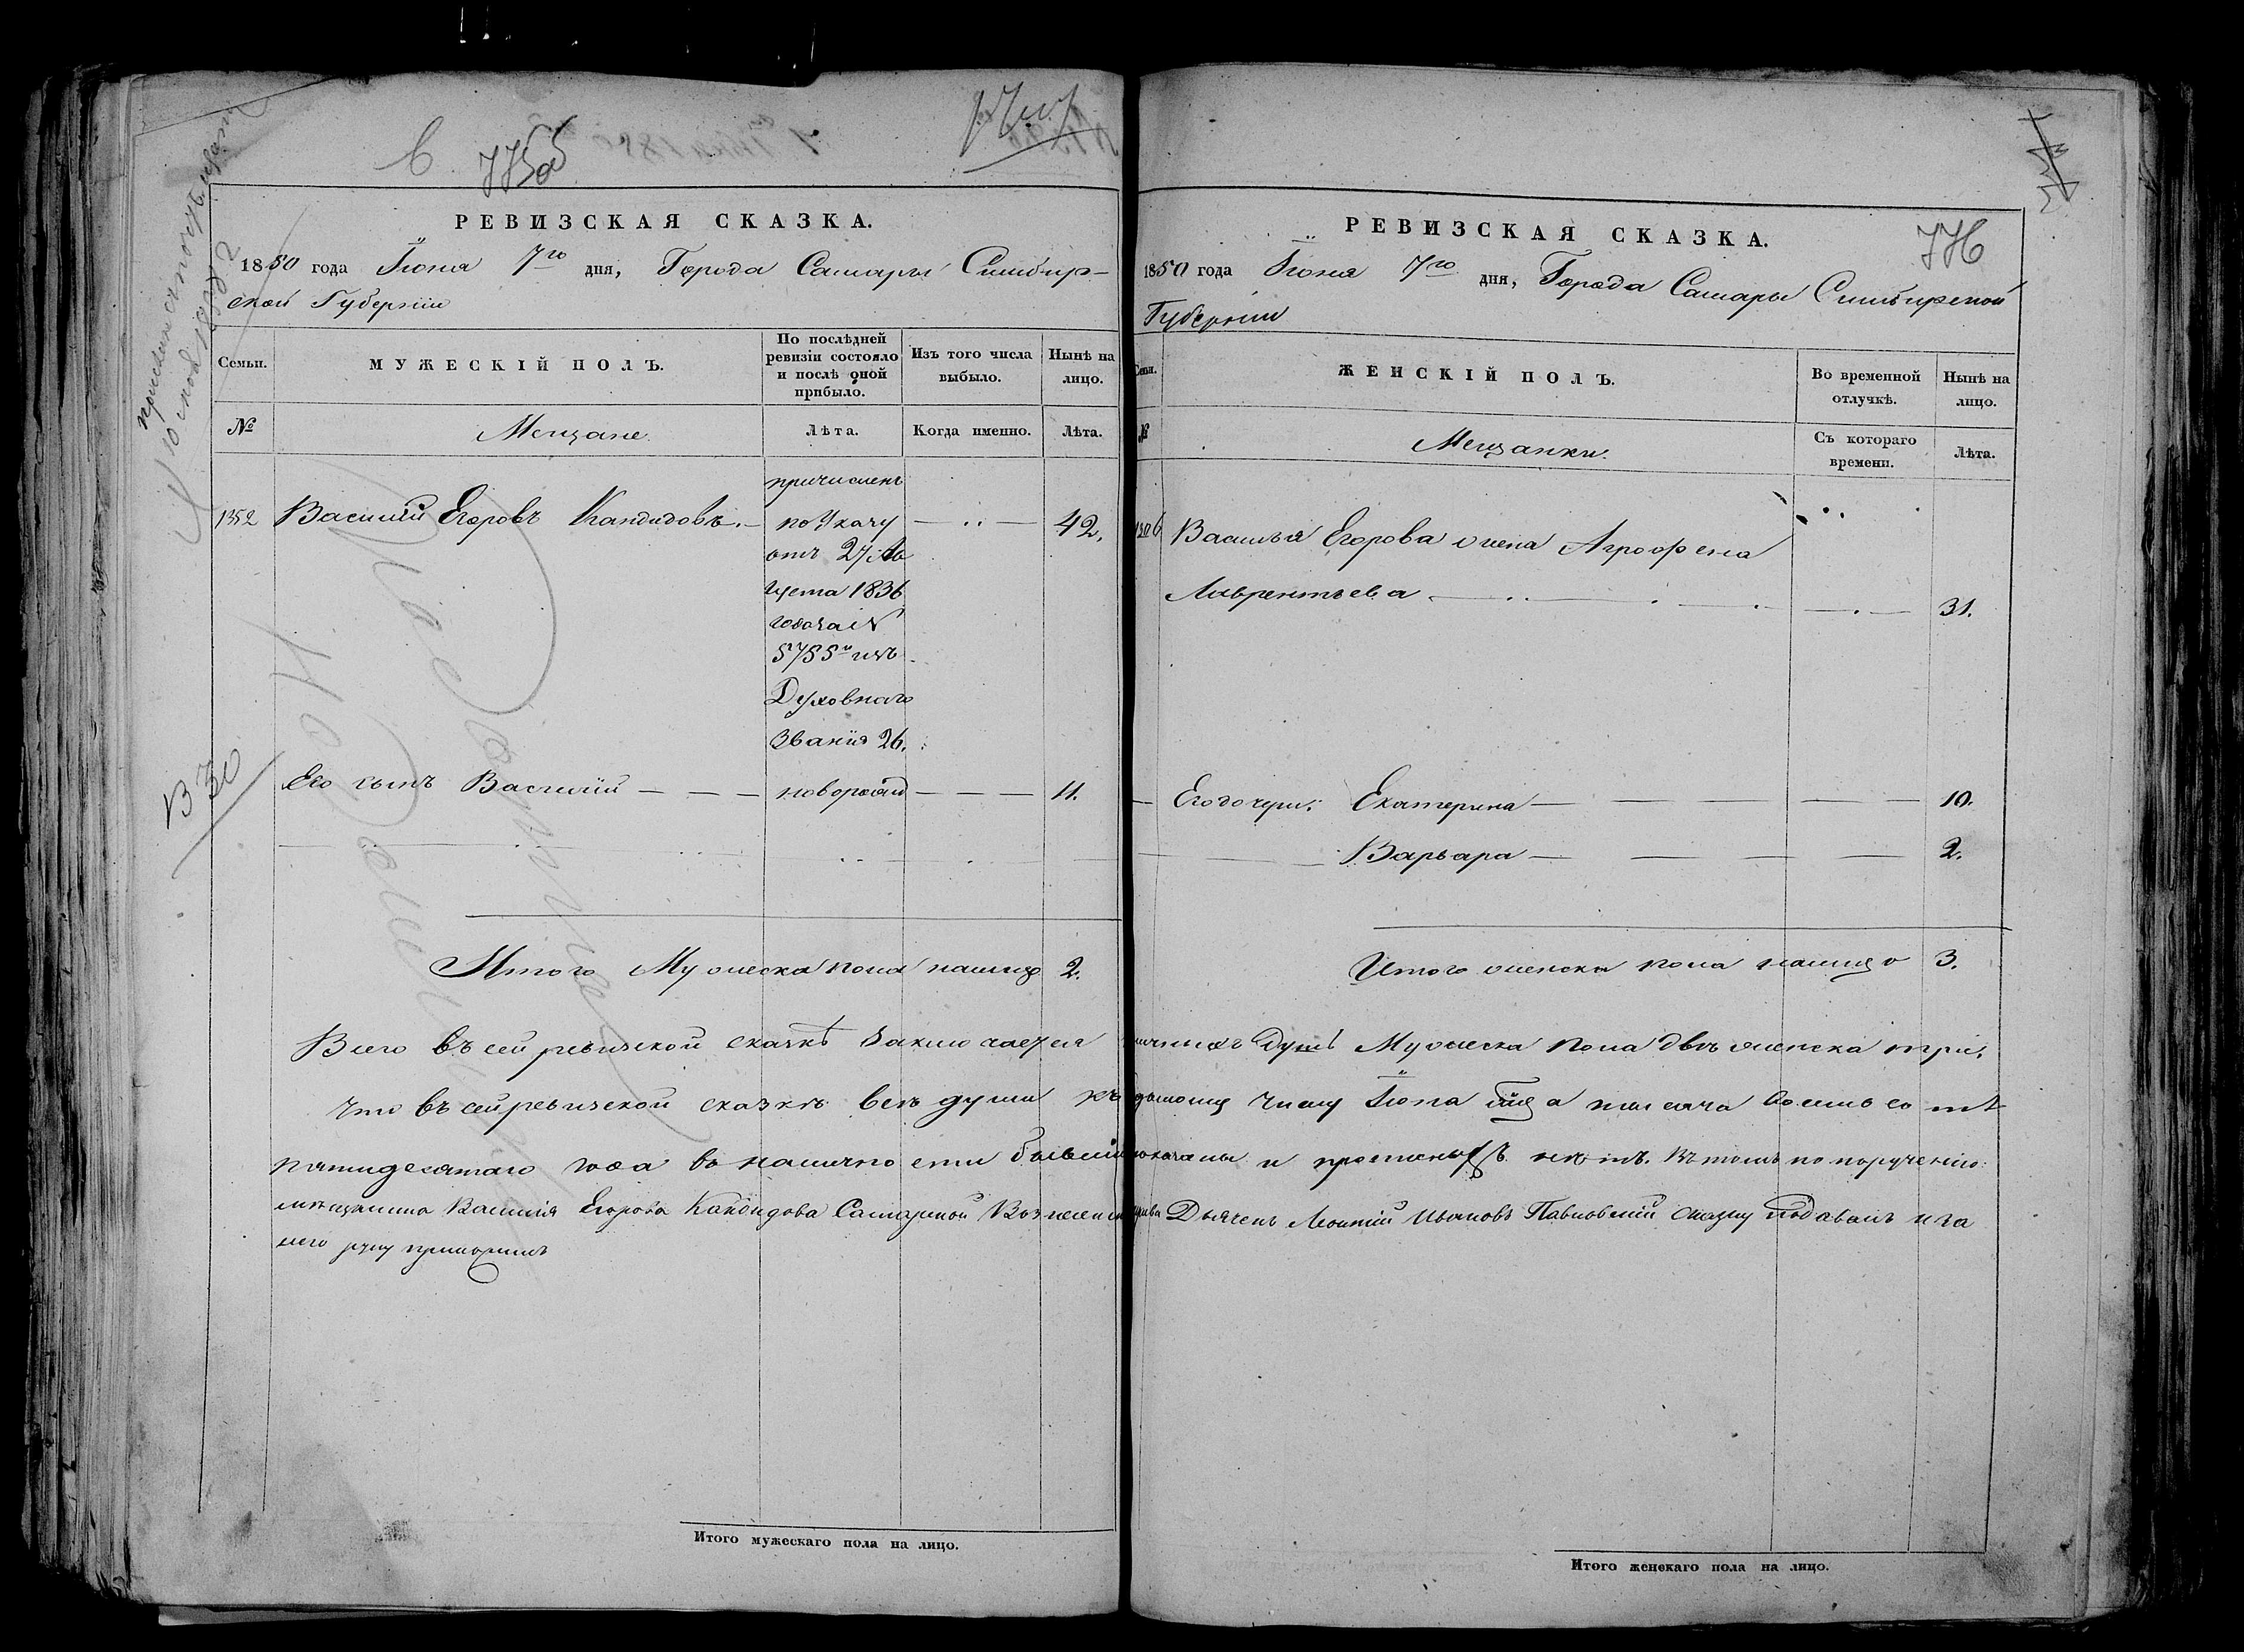 В
775об
РЕВИЗСКАЯ СКАЗКА.
1850 года Іюня 7го дня, Города Самары Симбир-
ской Губерніи
Семьи.
МУЖЕСКІЙ ПОЛЪ.
По послѣдней ревизіи состояло и послѣ оной прибыло.
Изъ того числа выбыло.
Нынѣ на лицо.
№
Мещане.
Лѣта.
Когда именно.
Лѣта.
1352 Василій Егоровъ Кандидовъ.
причисленъ
по Указу
отъ 27 Ав
густа 1836
года за №
5755м изъ
Духовнаго
Званія 26.
42.
Его сынъ Василій — — —новорожд — — — 11.
Итого Мужеска пола налицо 2.
В 30
РЕВИЗСКАЯ СКАЗКА.
776
1850 года Іюня 7го дня, Города Самары Симбирской
Губерніи
Семьи.
ЖЕНСКІЙ ПОЛЪ.
Во временной отлучкѣ.
Нынѣ на лицо.
№
Мещанки.
Съ котораго времени.
Лѣта.
Василья Егорова жена Агрофена
Лаврентьева 31.
Его дочери: Екатерина — 10.
Варвара — 2.
Итого женска пола налицо 3.
Всего въ сей ревизской сказкѣ заключается наличныхъ душъ Мужеска пола двѣ женска три.
Что въ сей ревизской сказкѣ всѣ души къ Іюня тысяча восемь сотъ
пятидесятаго года въ наличности показаны и прописныхъ нѣтъ. Въ томъ по порученію
мѣщанина Василія Егорова Кандидова Самарской Вознесенской Дьяченъ Леонтій Ивановъ Павловскій сказку подавалъ и за
него руку приложилъ
Итого мужескаго пола на лицо.
Итого женскаго пола на лицо.